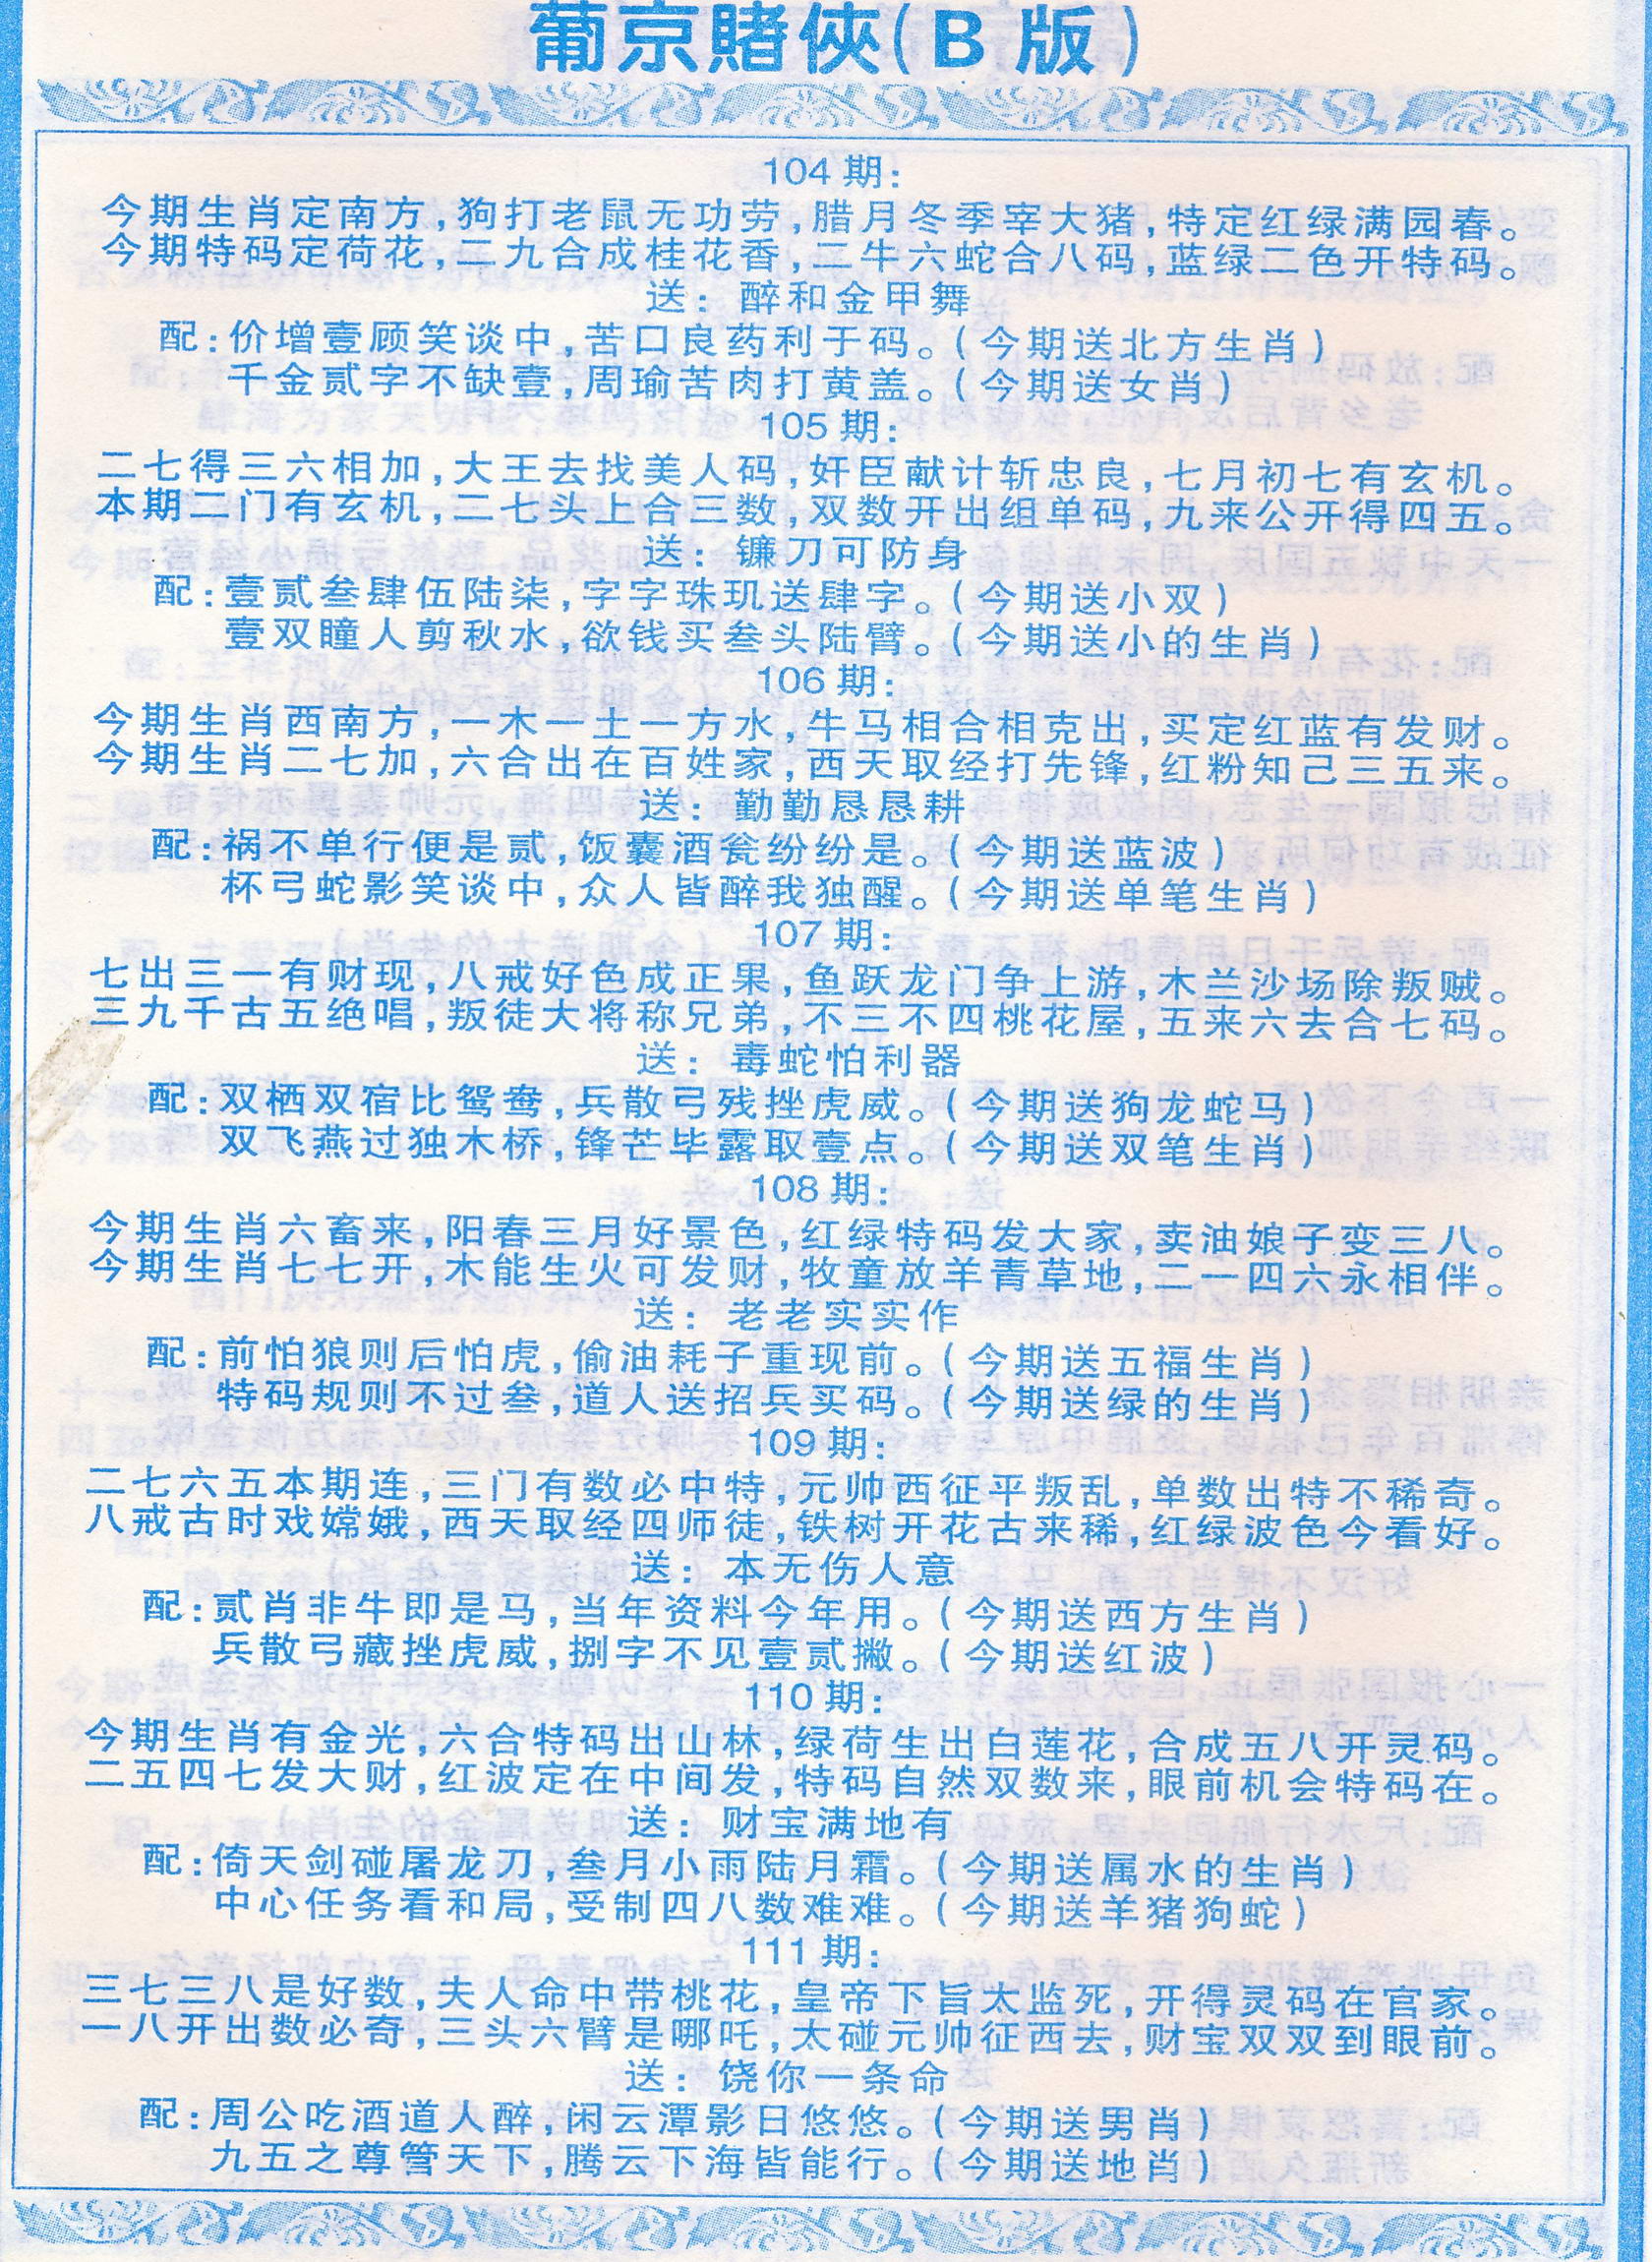 葡京賭俠(B 版)
104 期:
今期生肖定南方,狗打老鼠无功劳,腊月冬季宰大猪,特定红绿满园春。
今期特码定荷花,二九合成桂花香,二牛六蛇合八码,蓝绿二色开特码。
送: 醉和金甲舞
配:价增壹顾笑谈中,苦口良药利于码。(今期送北方生肖)
千金贰字不缺壹,周瑜苦肉打黄盖。(今期送女肖)
105 期:
二七得三六相加,大王去找美人码,奸臣献计斩忠良,七月初七有玄机。
本期二门有玄机,二七头上合三数,双数开出组单码,九来公开得四五。
送: 镰刀可防身
配:壹贰叁肆伍陆柒,字字珠玑送肆字。(今期送小双)
壹双瞳人剪秋水,欲钱买叁头陆臂。(今期送小的生肖)
106 期:
今期生肖西南方,一木一土一方水,牛马相合相克出,买定红蓝有发财。
今期生肖二七加,六合出在百姓家,西天取经打先锋,红粉知己三五来。
送: 勤勤恳恳耕
配:祸不单行便是贰,饭囊酒瓮纷纷是。(今期送蓝波)
杯弓蛇影笑谈中,众人皆醉我独醒。(今期送单笔生肖)
107 期:
七出三一有财现,八戒好色成正果,鱼跃龙门争上游,木兰沙场除叛贼。
三九千古五绝唱,叛徒大将称兄弟,不三不四桃花屋,五来六去合七码。
送: 毒蛇怕利器
配:双栖双宿比鸳鸯,兵散弓残挫虎威。(今期送狗龙蛇马)
双飞燕过独木桥,锋芒毕露取壹点。(今期送双笔生肖)
108 期:
今期生肖六畜来,阳春三月好景色,红绿特码发大家,卖油娘子变三八。
今期生肖七七开,木能生火可发财,牧童放羊青草地,二一四六永相伴。
送: 老老实实作
配:前怕狼则后怕虎,偷油耗子重现前。(今期送五福生肖)
特码规则不过叁,道人送招兵买码。(今期送绿的生肖)
109 期:
二七六五本期连,三门有数必中特,元帅西征平叛乱,单数出特不稀奇。
八戒古时戏嫦娥,西天取经四师徒,铁树开花古来稀,红绿波色今看好。
送: 本无伤人意
配:贰肖非牛即是马,当年资料今年用。(今期送西方生肖)
兵散弓藏挫虎威,捌字不见壹贰撇。(今期送红波)
110 期:
今期生肖有金光,六合特码出山林,绿荷生出白莲花,合成五八开灵码。
二五四七发大财,红波定在中间发,特码自然双数来,眼前机会特码在。
送: 财宝满地有
配:倚天剑碰屠龙刀,叁月小雨陆月霜。(今期送属水的生肖)
中心任务看和局,受制四八数难难。(今期送羊猪狗蛇)
111 期:
三七三八是好数,夫人命中带桃花,皇帝下旨太监死,开得灵码在官家。
一八开出数必奇,三头六臂是哪吒,太碰元帅征西去,财宝双双到眼前。
送: 饶你一条命
配:周公吃酒道人醉,闲云潭影日悠悠。(今期送男肖)
九五之尊管天下,腾云下海皆能行。(今期送地肖)